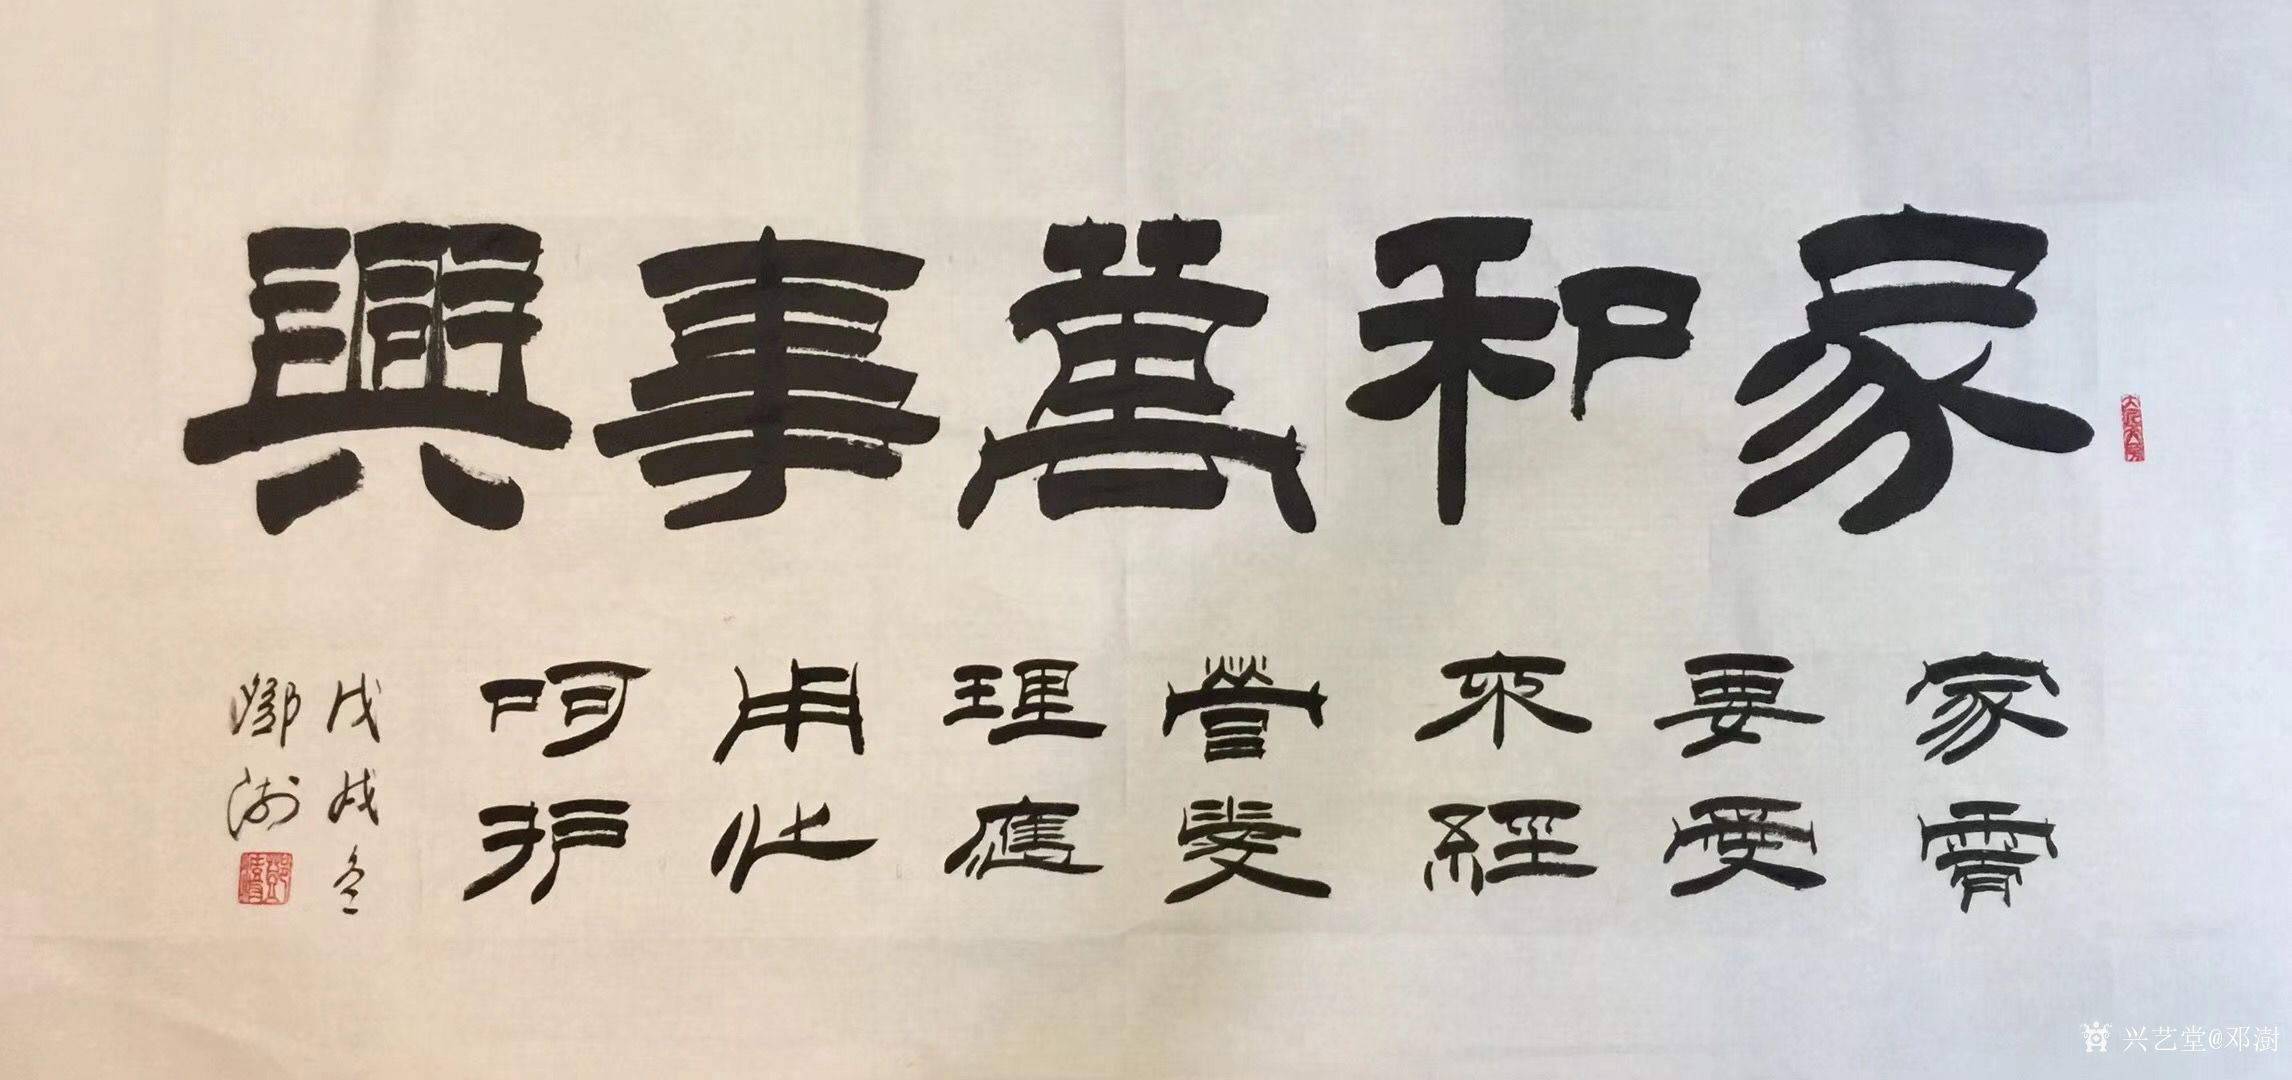 家和萬事興
家需
要愛
來經
營愛
理應
用心
呵护
戊戌冬
鄧澍
兴艺堂@邓澍